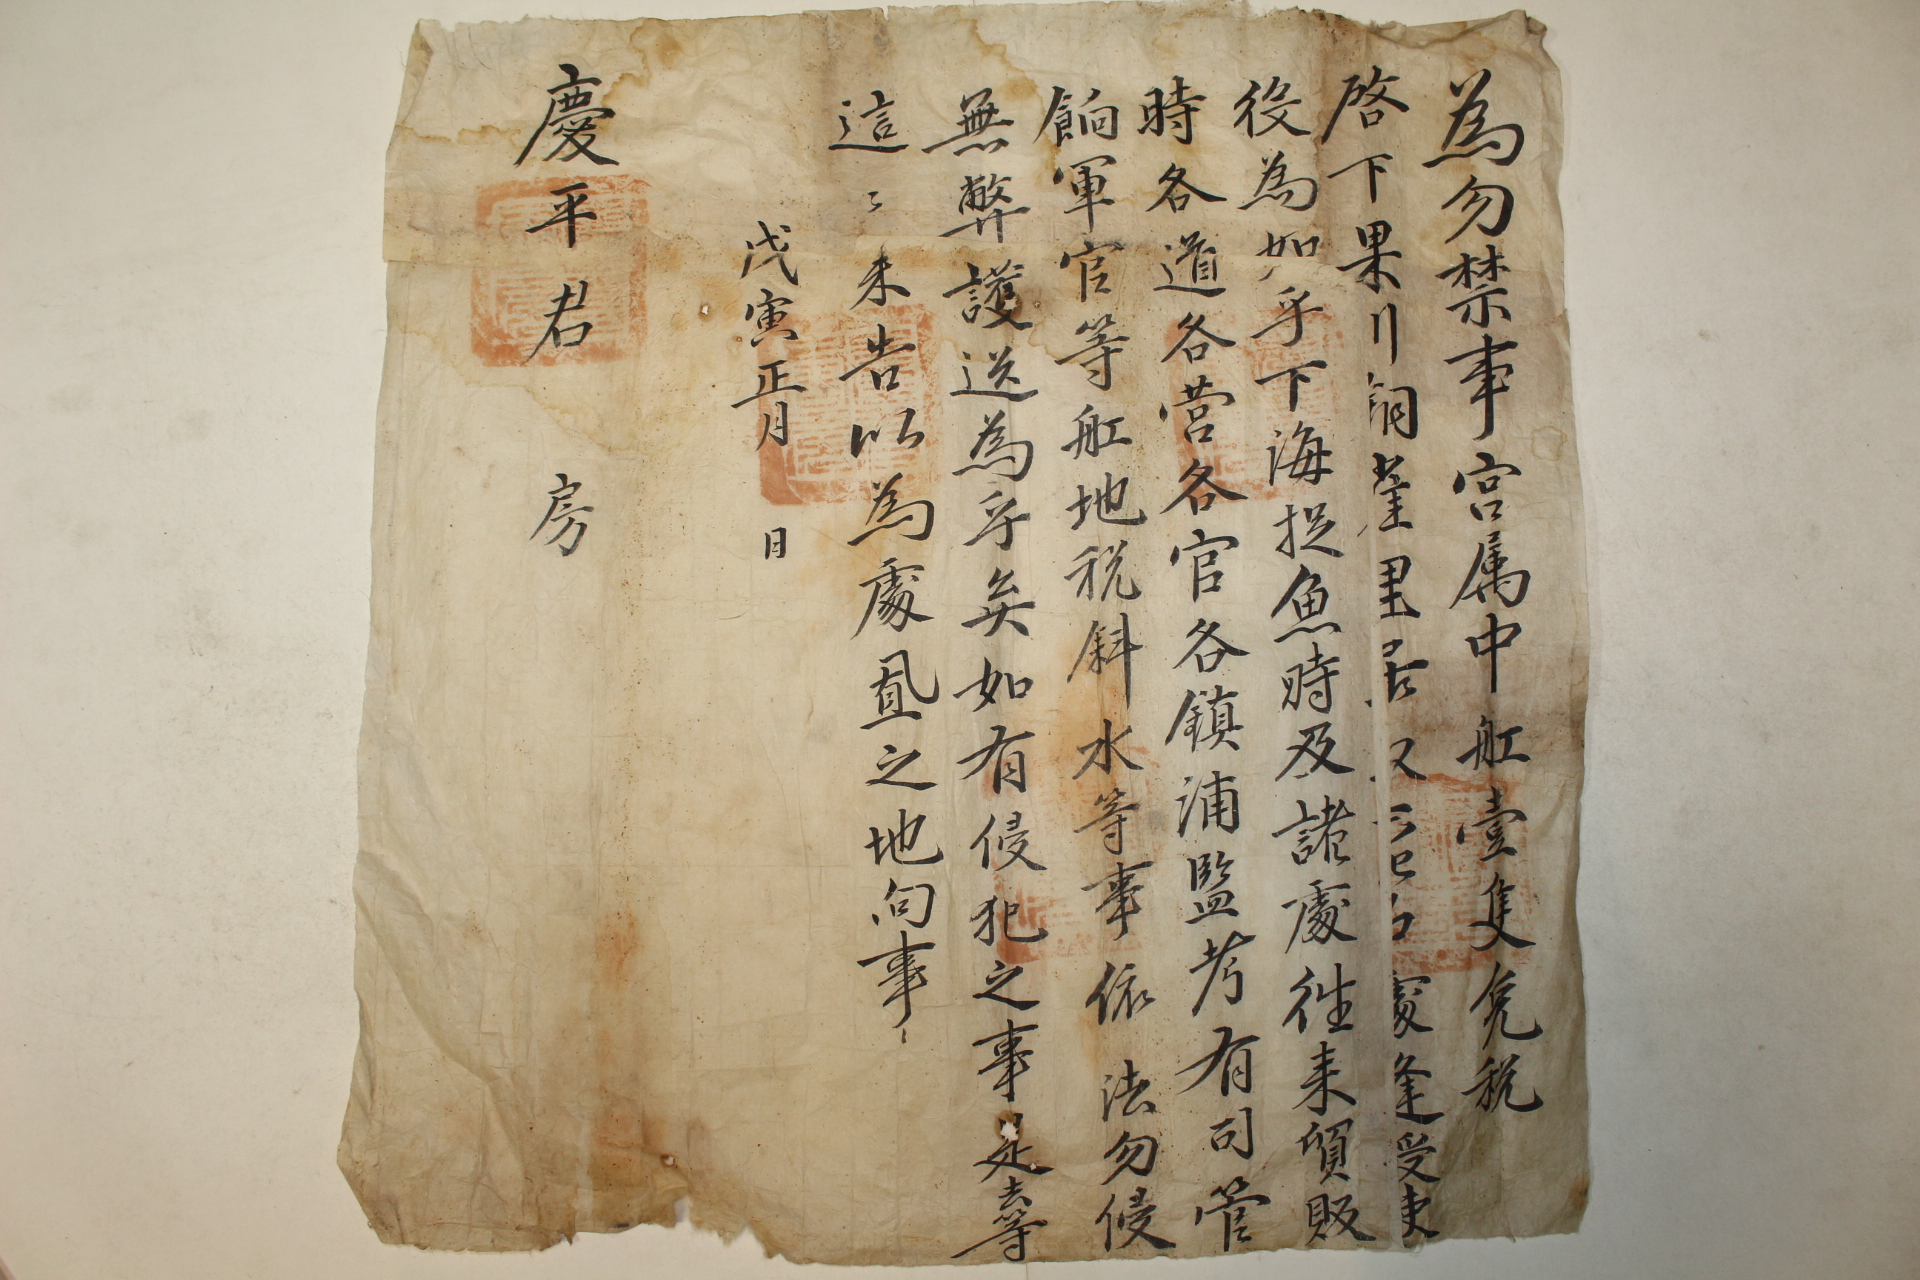 為勿禁事宮属中舡壹隻免税
啓下果川銅雀里居 處逢受
役為如乎下海捉魚時及諸處往来貿販
時各道各営各官各鎮浦監考有司管
餉軍官等舡地税斜水等事依 法勿侵
無弊護送為乎矣如有侵犯之事是去等
這〻来告以為處置之地向事
戊寅正月 日
慶平君 房